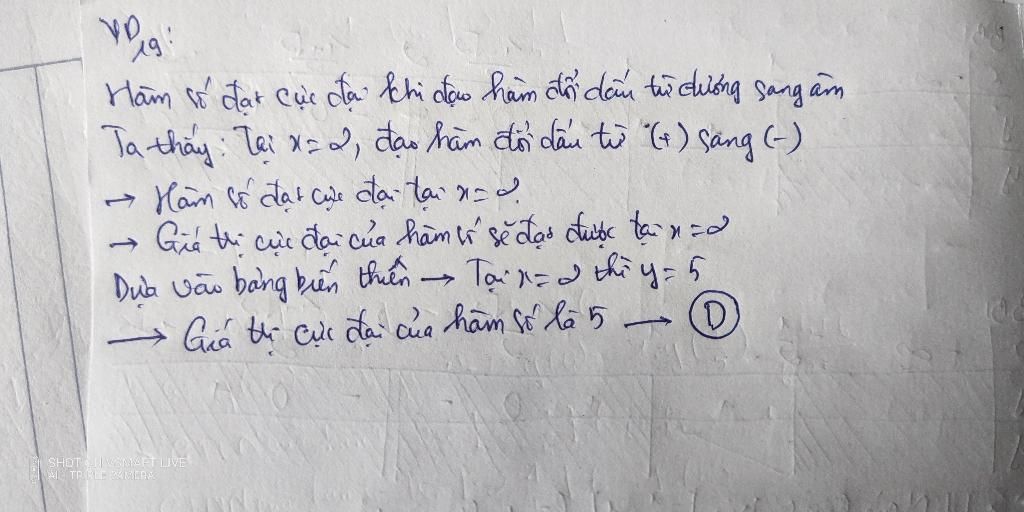 VD19:
Hàm số đạt cực đại khi đạo hàm đổi dấu từ dương sang âm
Ta thấy: Tại x=2, đạo hàm đổi dấu từ (+) sang (-)
→ Hàm số đạt cực đại tại x=2.
→ Giá trị cực đại của hàm số sẽ đạt được tại x=2
Dựa vào bảng biến thiên → Tại x=2 thì y=5
→ Giá trị cực đại của hàm số là 5 → D
SHOT ON VSMART LIVE
AI TRIPLE CAMERA